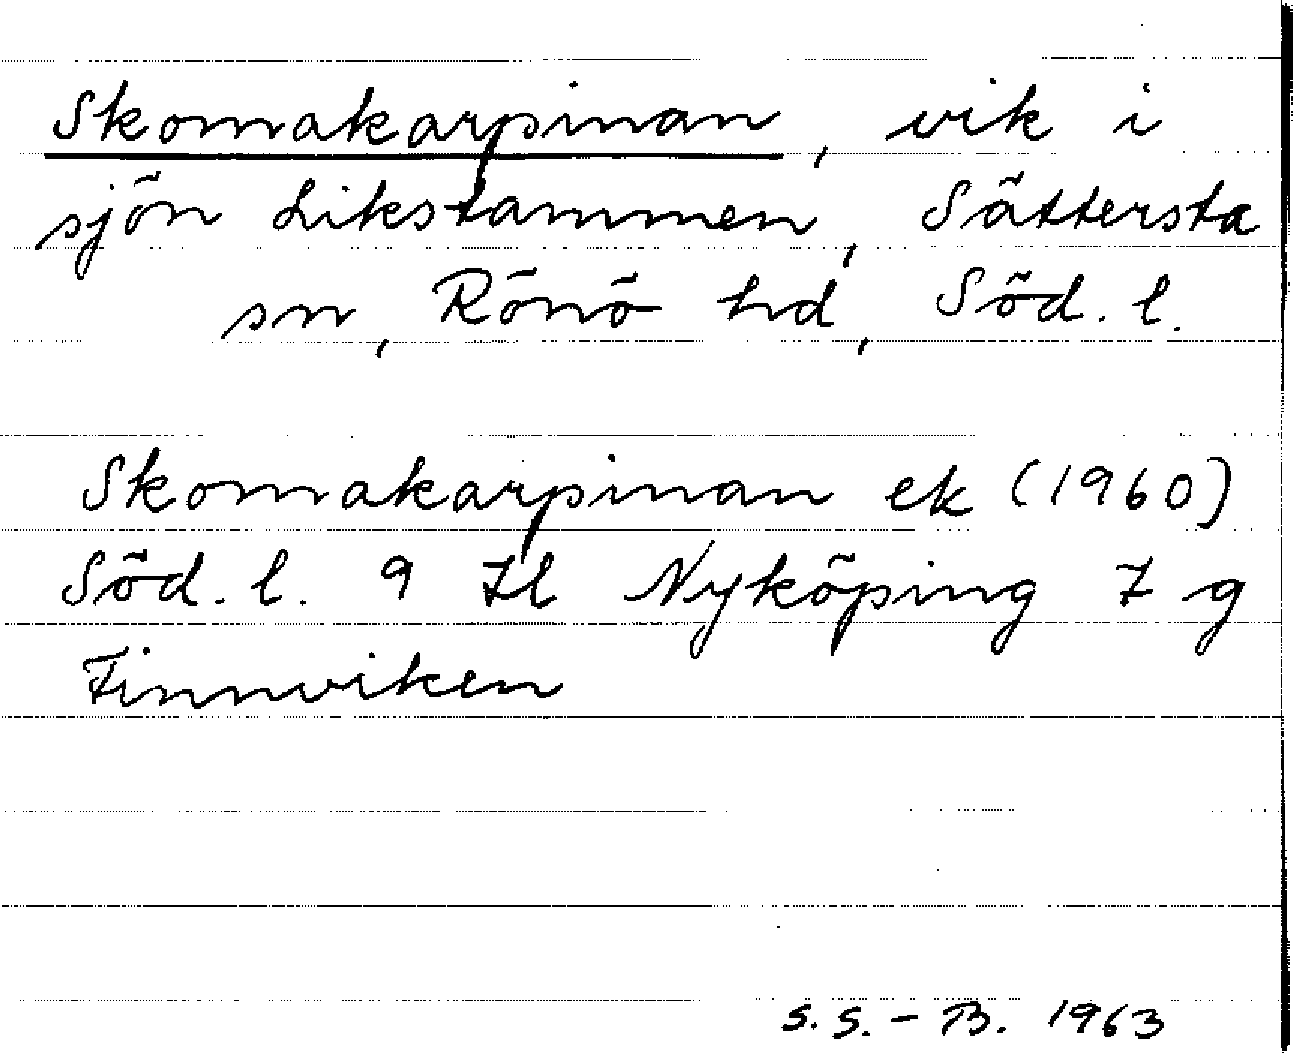 Skomakarpinan, vik i
sjön Likstammen, Sättersta
sn, Rönö hd, Söd. l.
Skomakarpinan ek (1960)
Söd. l. 9 Il Nyköping 7 g
Finnviken
S.S.-B. 1963